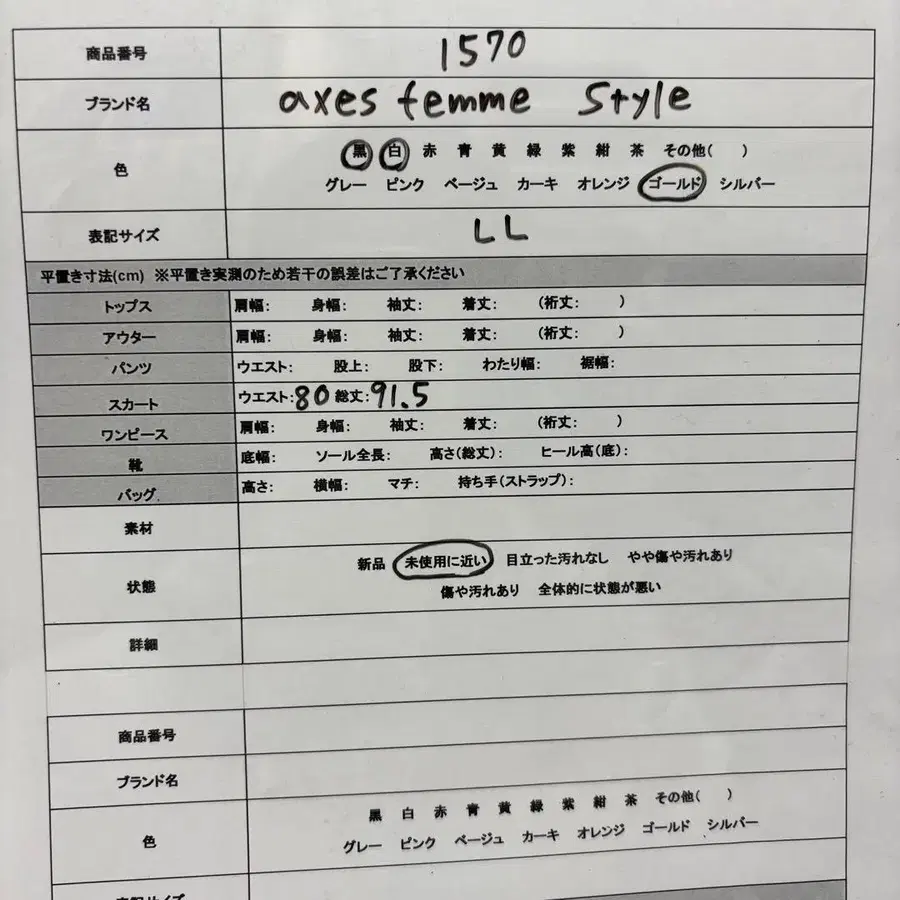 商品番号 1570
ブランド名 axes femme Style
色 黒 白 赤 青 黄 緑 紫 紺 茶 その他( )
グレー ピンク ベージュ カーキ オレンジ ゴールド シルバー
表記サイズ LL
平置き寸法(cm) ※平置き実測のため若干の誤差はご了承ください
トップス 肩幅: 身幅: 袖丈: 着丈: (裄丈: )
アウター 肩幅: 身幅: 袖丈: 着丈: (裄丈: )
パンツ ウエスト: 股上: 股下: わたり幅: 裾幅:
スカート ウエスト:80 総丈:91.5
ワンピース 肩幅: 身幅: 袖丈: 着丈: (裄丈: )
靴 底幅: ソール全長: 高さ(総丈): ヒール高(底):
バッグ 高さ: 横幅: マチ: 持ち手(ストラップ):
素材
状態 新品 未使用に近い 目立った汚れなし やや傷や汚れあり
傷や汚れあり 全体的に状態が悪い
詳細
商品番号
ブランド名
色 黒 白 赤 青 黄 緑 紫 紺 茶 その他( )
グレー ピンク ベージュ カーキ オレンジ ゴールド シルバー
表記サイズ